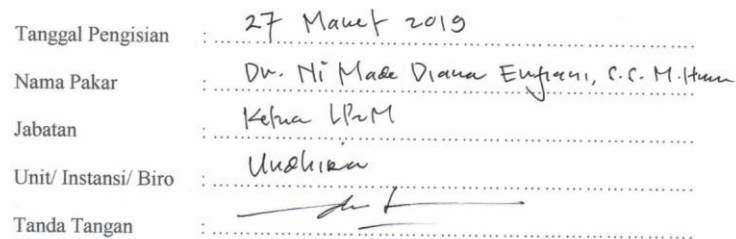 Tanggal Pengisian : 27 Maret 2019
Nama Pakar : Dr. Ni Made Diana Erfiani, S.S. M.Hum
Jabatan : Ketua LP2M
Unit/ Instansi/ Biro : Undhira
Tanda Tangan :